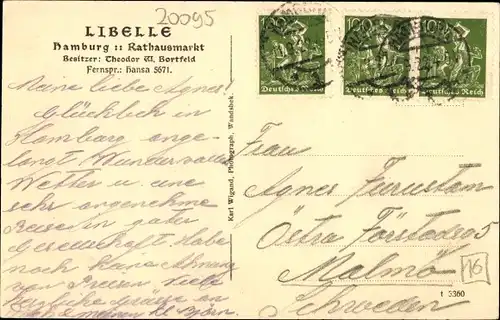 20095
LIBELLE
Hamburg :: Rathausmarkt
Besitzer: Theodor W. Bortfeld
Fernspr.: Hansa 5671.
Meine liebe Agnes!
Glücklich in
Hamburg ange-
langt. Wundervolles
Wetter u. eine
sehr angenehme
Reise in guter
Gesellschaft. Habe
noch keine Ahnung
von Preisen. Viele
herzliche Grüsse an
Björn
Karl Wigand, Photograph, Wandsbek.
100 100
Deutsches Reich Deutsches Reich Deutsches Reich
Frau
Agnes
Östra Förstadsg 5
Malmö
Schweden
16
t 5360